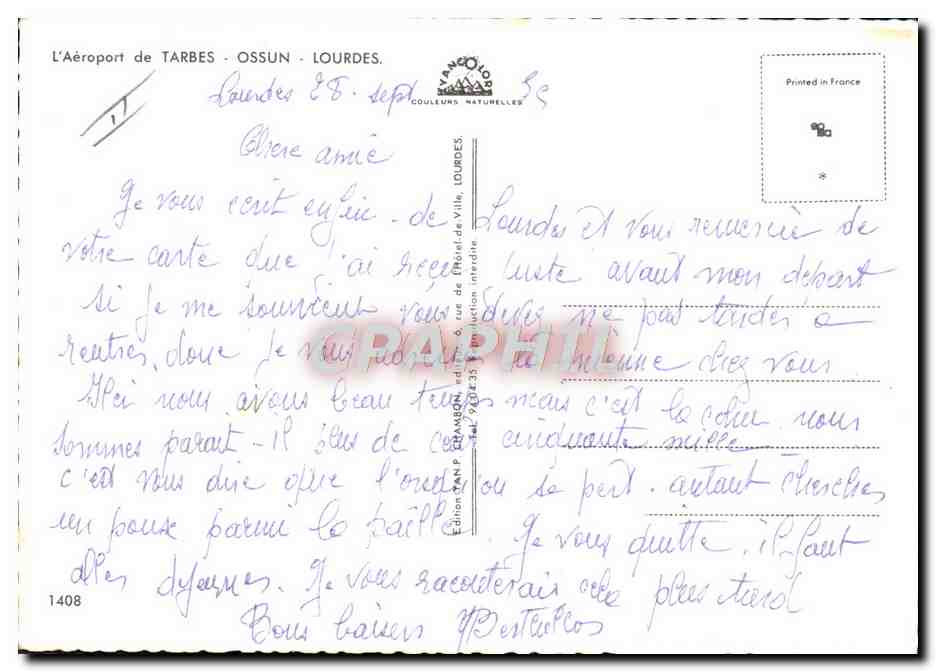 L'Aéroport de TARBES - OSSUN - LOURDES.
YVANCOLOR
COULEURS NATURELLES
Printed in France
*
Lourdes 28. sept
Chere amie
Je vous ecrit enfin de Lourdes et vous remercie de
votre carte que j'ai reçu juste avant mon depart
si je me souvient vous devez ne pas tarder a
rentrer donc je vous la mienne chez vous
Ici nous avons beau temps mais c'est la cohu nous
sommes parait-il plus de cent cinquante mille
c'est vous dire que l'on se pert. autant chercher
un poux parmi la paille. Je vous quitte. il faut
aller dejeuner. Je vous raconterais cela plus tard
Bons baisers
Edition YAN P. CHAMBON, edition 6, rue de l'Hôtel-de-Ville, LOURDES.
Tél. 94.04.35 Reproduction interdite.
CPAPHIL
1408